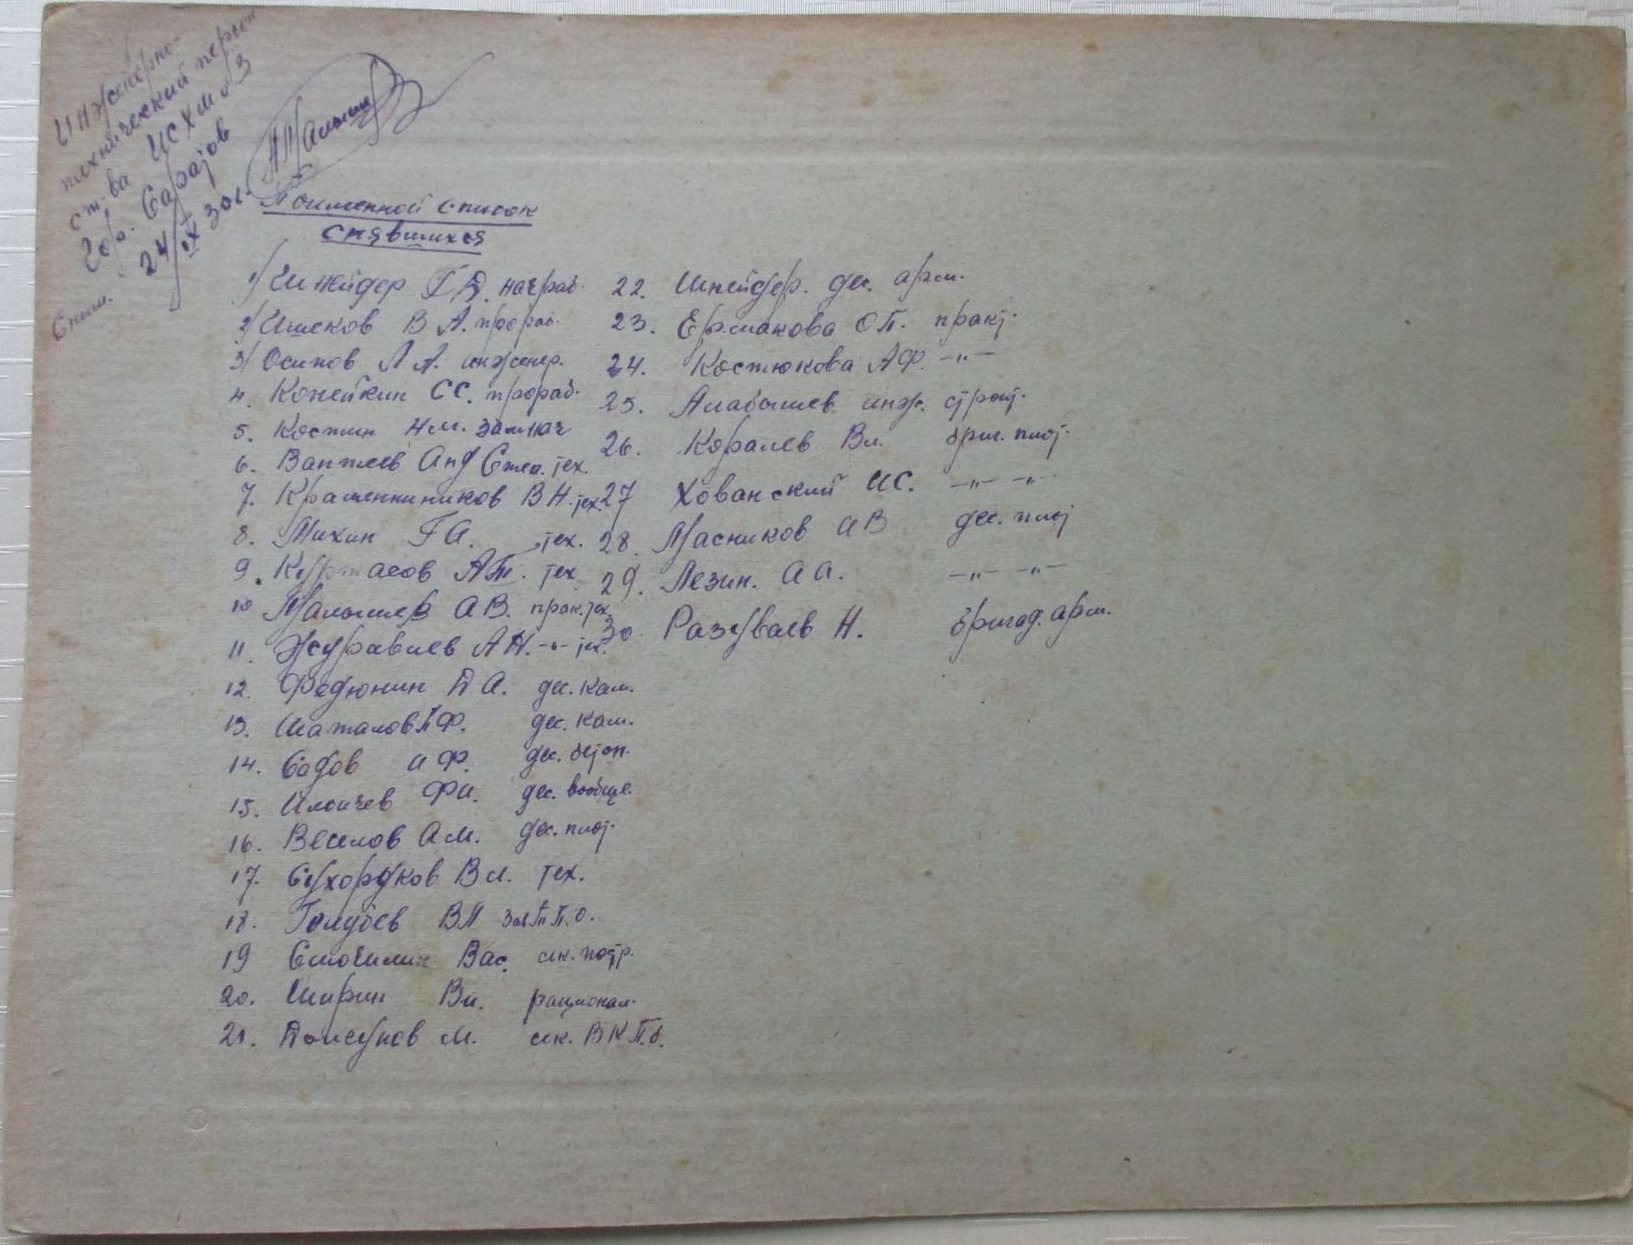 Инженерно-
технический персон
ст-ва ИСХМ №3
гор. Саратов
24/IX 30 г.
Сним.
Поименной список
снявшихся
1/ Шнейдер Г Д. нач раб.
2/ Ишеков В А. прораб.
3/ Осипов Л А. инженер.
4. Копейкин СС. прораб.
5. Костин НМ.
6. Ваптлев Анд Степ. тех.
7. Крашенинников В Н. тех.
8. Тихин Г А. тех.
9. Куртасов А тех
10 Малышев А В. прак. тех
11. Журавлев А Н. -"- тех.
12. Федюнин Д А. дес. кам.
13. Шаталов П Ф. дес. кам.
14. Садов И Ф. дес. бетон.
15. Ильичев Ф И. дес. вообще.
16. Веселов А М. дес. плот.
17. Сухоруков Вл. тех.
18. Голубев В П зав. Т. П. О.
19 Сточилин Вас. сек. постр.
20. Ширин Вл. рационал.
21. М. сек. В К П. б.
22. Шнейдер. дес. арм.
23. Ермакова О П. практ.
24. Костюкова А Ф. -"-
25. Алабышев инж. строит.
26. Королев Вл. бриг. плот.
27 Хованский И С. -"- -"-
28. Масников И В дес. плот
29. Лезин. А А. -"- -"-
30. Разуваев Н. бригад. арм.